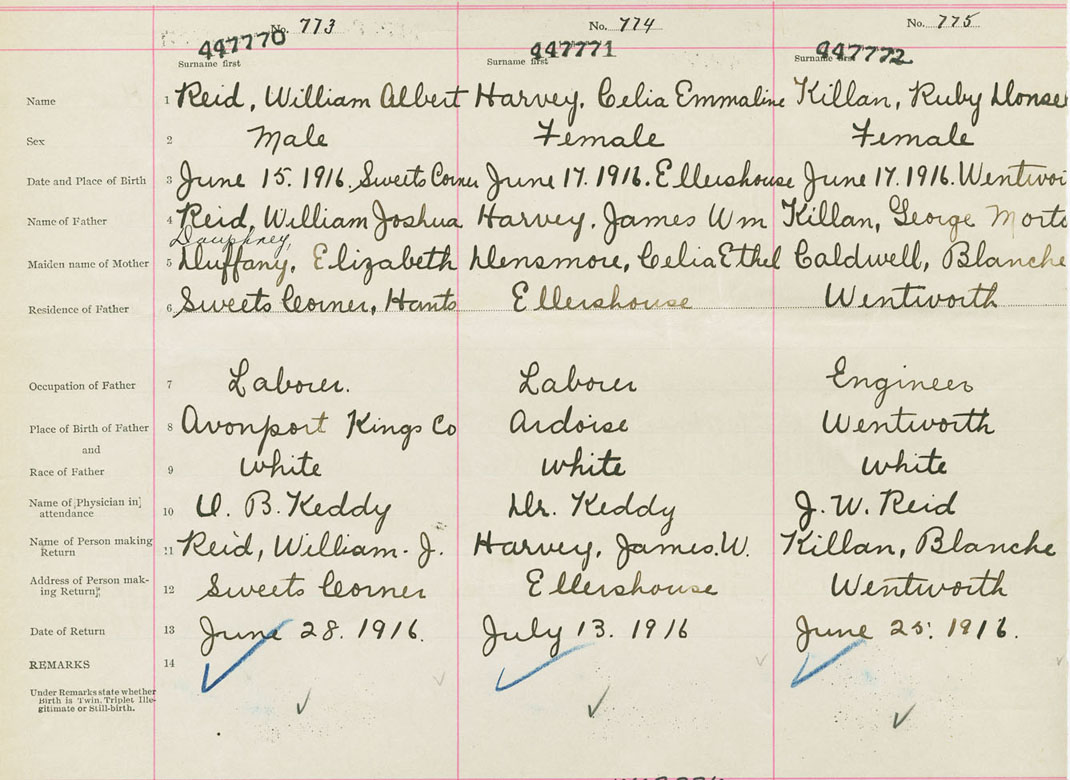 No. 773 No. 774 No. 775
447770 447771 447772
Surname first Surname first Surname first
Name 1 Reid, William Albert Harvey, Celia Emmaline Killan, Ruby
Sex 2 Male Female Female
Date and Place of Birth 3 June 15. 1916. Sweets Corner June 17. 1916. Ellershouse June 17. 1916. Wentwor
Name of Father 4 Reid, William Joshua Harvey, James Wm Killan, George Morto
Dauphney,
Maiden name of Mother 5 Duffany, Elizabeth Densmore, Celia Ethel Caldwell, Blanche
Residence of Father 6 Sweets Corner, Hants Ellershouse Wentworth
Occupation of Father 7 Laborer. Laborer Engineer
Place of Birth of Father 8 Avonport Kings Co Ardoise Wentworth
and
Race of Father 9 White White White
Name of Physician in 10 B. Keddy Dr. Keddy J. W. Reid
attendance
Name of Person making 11 Reid, William. J. Harvey, James. W. Killan, Blanche
Return
Address of Person mak- 12 Sweets Corner Ellershouse Wentworth
ing Return
Date of Return 13 June 28. 1916. July 13. 1916 June 25. 1916.
REMARKS 14
Under Remarks state whether
Birth is Twin, Triplet Ille-
gitimate or Still-birth.